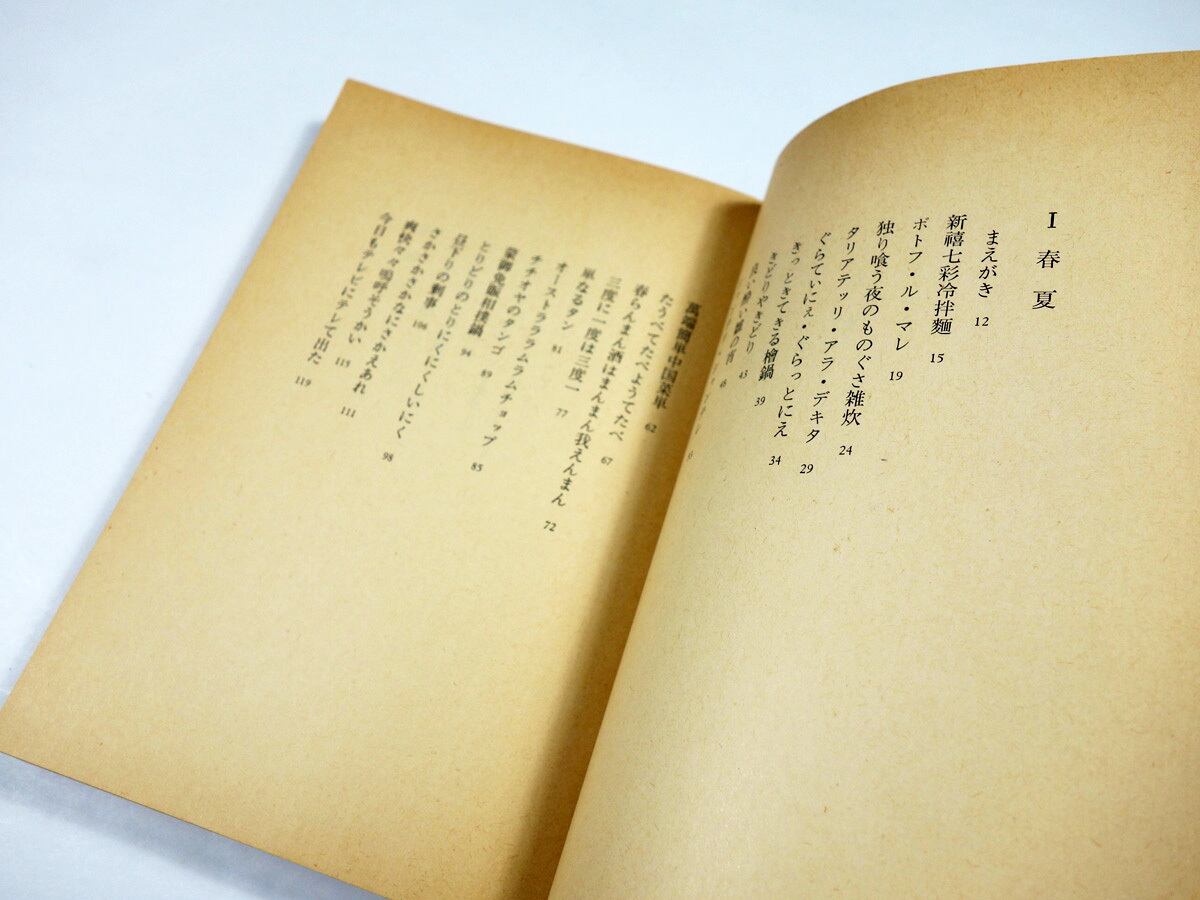 I 春夏
まえがき 12
新禧七彩冷拌麵 15
ポトフ・ル・マレ 19
独り喰う夜のものぐさ雑炊 24
タリアテッリ・アラ・デキタ 29
ぐらてぃにぇ・ぐらっとにえ 34
きっときてきる檜鍋 39
きどりやきどり 43
46
萬端簡単中国菜単 62
たうべてたべようてたべ 67
春らんまん酒はまんまん我えんまん 72
三度に一度は三度一 77
単なるタン 81
オーストラララムラムチョップ 85
チチオヤのタンゴ 89
菜鋼兔飯相撲鍋 94
とりどりのとりにくにくしいにく 98
昼下りの刺事 106
さかさかさかなにさかえあれ 111
爽快々々嗚呼そうかい 115
今日もテレビにテレて出た 119